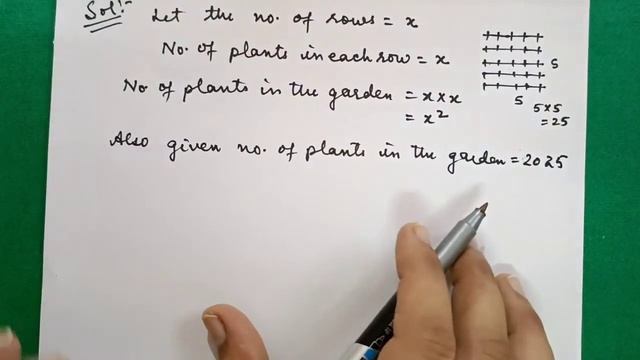 Sol:-
Let the no. of rows = x
No. of plants in each row = x
No of plants in the garden = x×x
= x²
Also given no. of plants in the garden = 2025
5
5
5×5
= 25